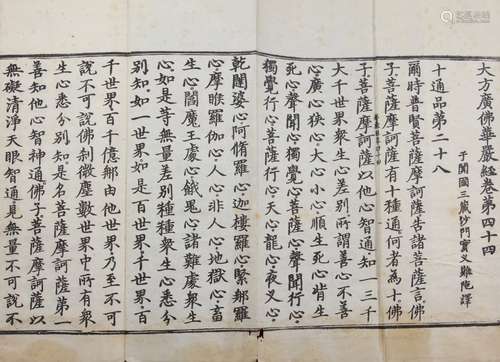 大方廣佛華嚴經卷第四十四
于闐國三藏沙門實叉難陀譯
十通品第二十八
爾時普賢菩薩摩訶薩告諸菩薩言佛
子菩薩摩訶薩有十種通何者為十佛
子菩薩摩訶薩以他心智通知一三千
大千世界眾生心差別所謂善心不善
心廣心狹心大心小心順生死心背生
死心聲聞心獨覺心菩薩心聲聞行心
獨覺行心菩薩行心天心龍心夜叉心
乾闥婆心阿脩羅心迦樓羅心緊那羅
心摩睺羅伽心人心非人心地獄心畜
生心閻魔王處心餓鬼心諸難處眾生
心如是等無量差別種種眾生心悉分
別知如一世界如是百世界千世界百
千世界百千億那由他世界乃至不可
說不可說佛剎微塵數世界中所有眾
生心悉分別知是名菩薩摩訶薩第一
善知他心智神通佛子菩薩摩訶薩以
無礙清淨天眼智通見無量不可說不